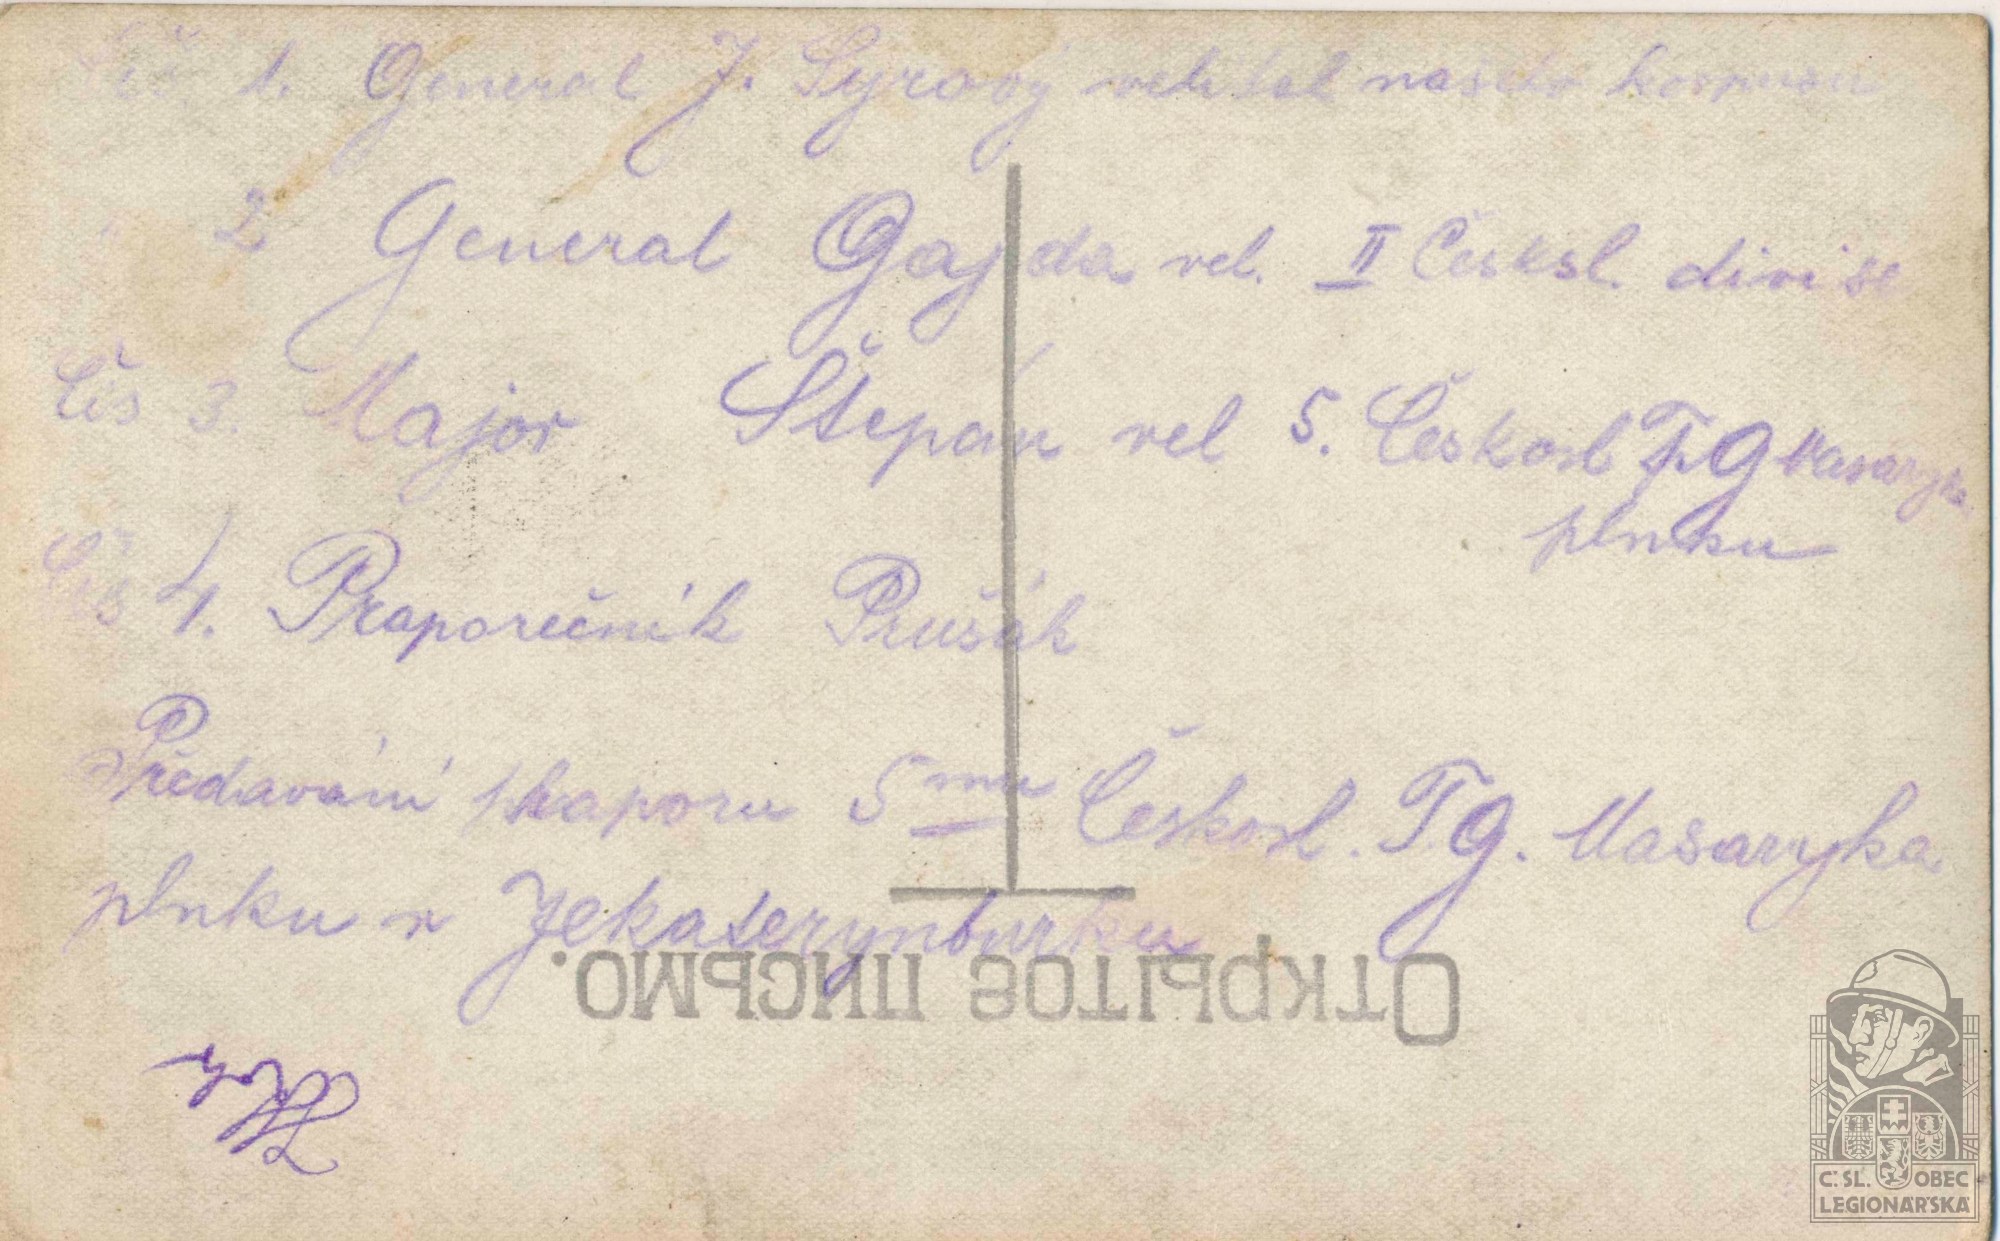 Čís. 1. General J. Syrový velitel našeho korpusu
" 2 General Gajda vel. II Česksl. divise
Čís 3. Major Štěpán vel 5. Českosl T. G Masaryka
plnku
Čís 4. Praporečník Prušák
Předávání praporu 5mu Českosl. T. G. Masaryka
plnku v Jekaterynburku
Открытое письмо.
Č. SL. OBEC
LEGIONÁŘSKÁ